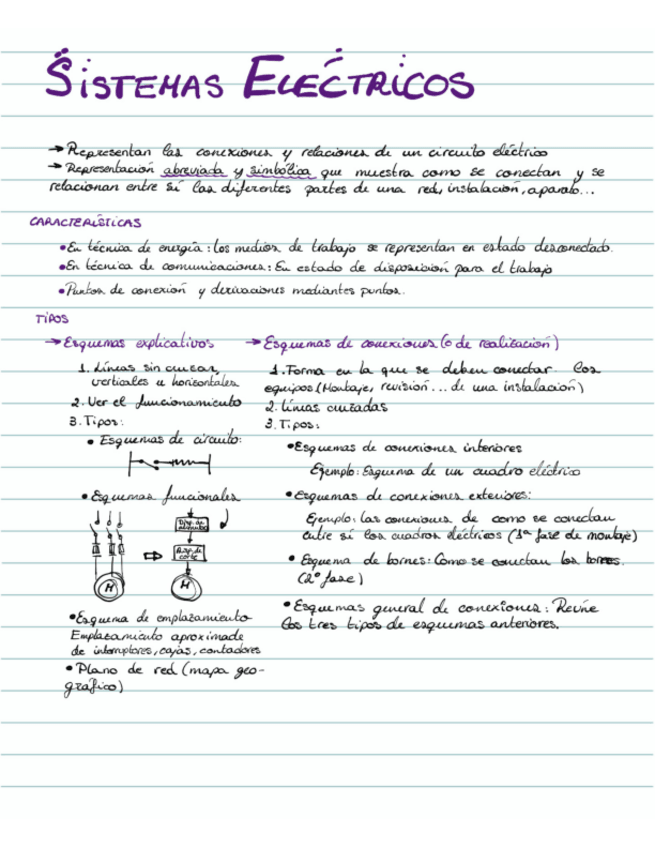 SISTEMAS ELÉCTRICOS
→ Representan las conexiones y relaciones de un circuito eléctrico
→ Representación abreviada y simbólica que muestra como se conectan y se
relacionan entre sí las diferentes partes de una red, instalación, aparato...
CARACTERÍSTICAS
• En técnica de energía: los medios de trabajo se representan en estado desconectado.
• En técnica de comunicaciones: En estado de disposición para el trabajo
• Puntos de conexión y derivaciones mediantes puntos.
TIPOS
→ Esquemas explicativos
1. Líneas sin cruzar,
verticales u horizontales
2. Ver el funcionamiento
3. Tipos:
• Esquemas de circuito:
• Esquemas funcionales
Disp. de
Disp. de
corte
M
M
• Esquema de emplazamiento
Emplazamiento aproximado
de interruptores, cajas, contadores
• Plano de red (mapa geo-
gráfico)
→ Esquemas de conexiones (o de realización)
1. Forma en la que se deben conectar los
equipos (Montaje, revisión... de una instalación)
2. Líneas cruzadas
3. Tipos:
• Esquemas de conexiones interiores
Ejemplo: Esquema de un cuadro eléctrico
• Esquemas de conexiones exteriores:
Ejemplo: las conexiones de como se conectan
entre sí los cuadros eléctricos (1ª fase de montaje)
• Esquema de bornes: Como se conectan los bornes.
(2º fase)
• Esquemas general de conexiones: Reúne
los tres tipos de esquemas anteriores.